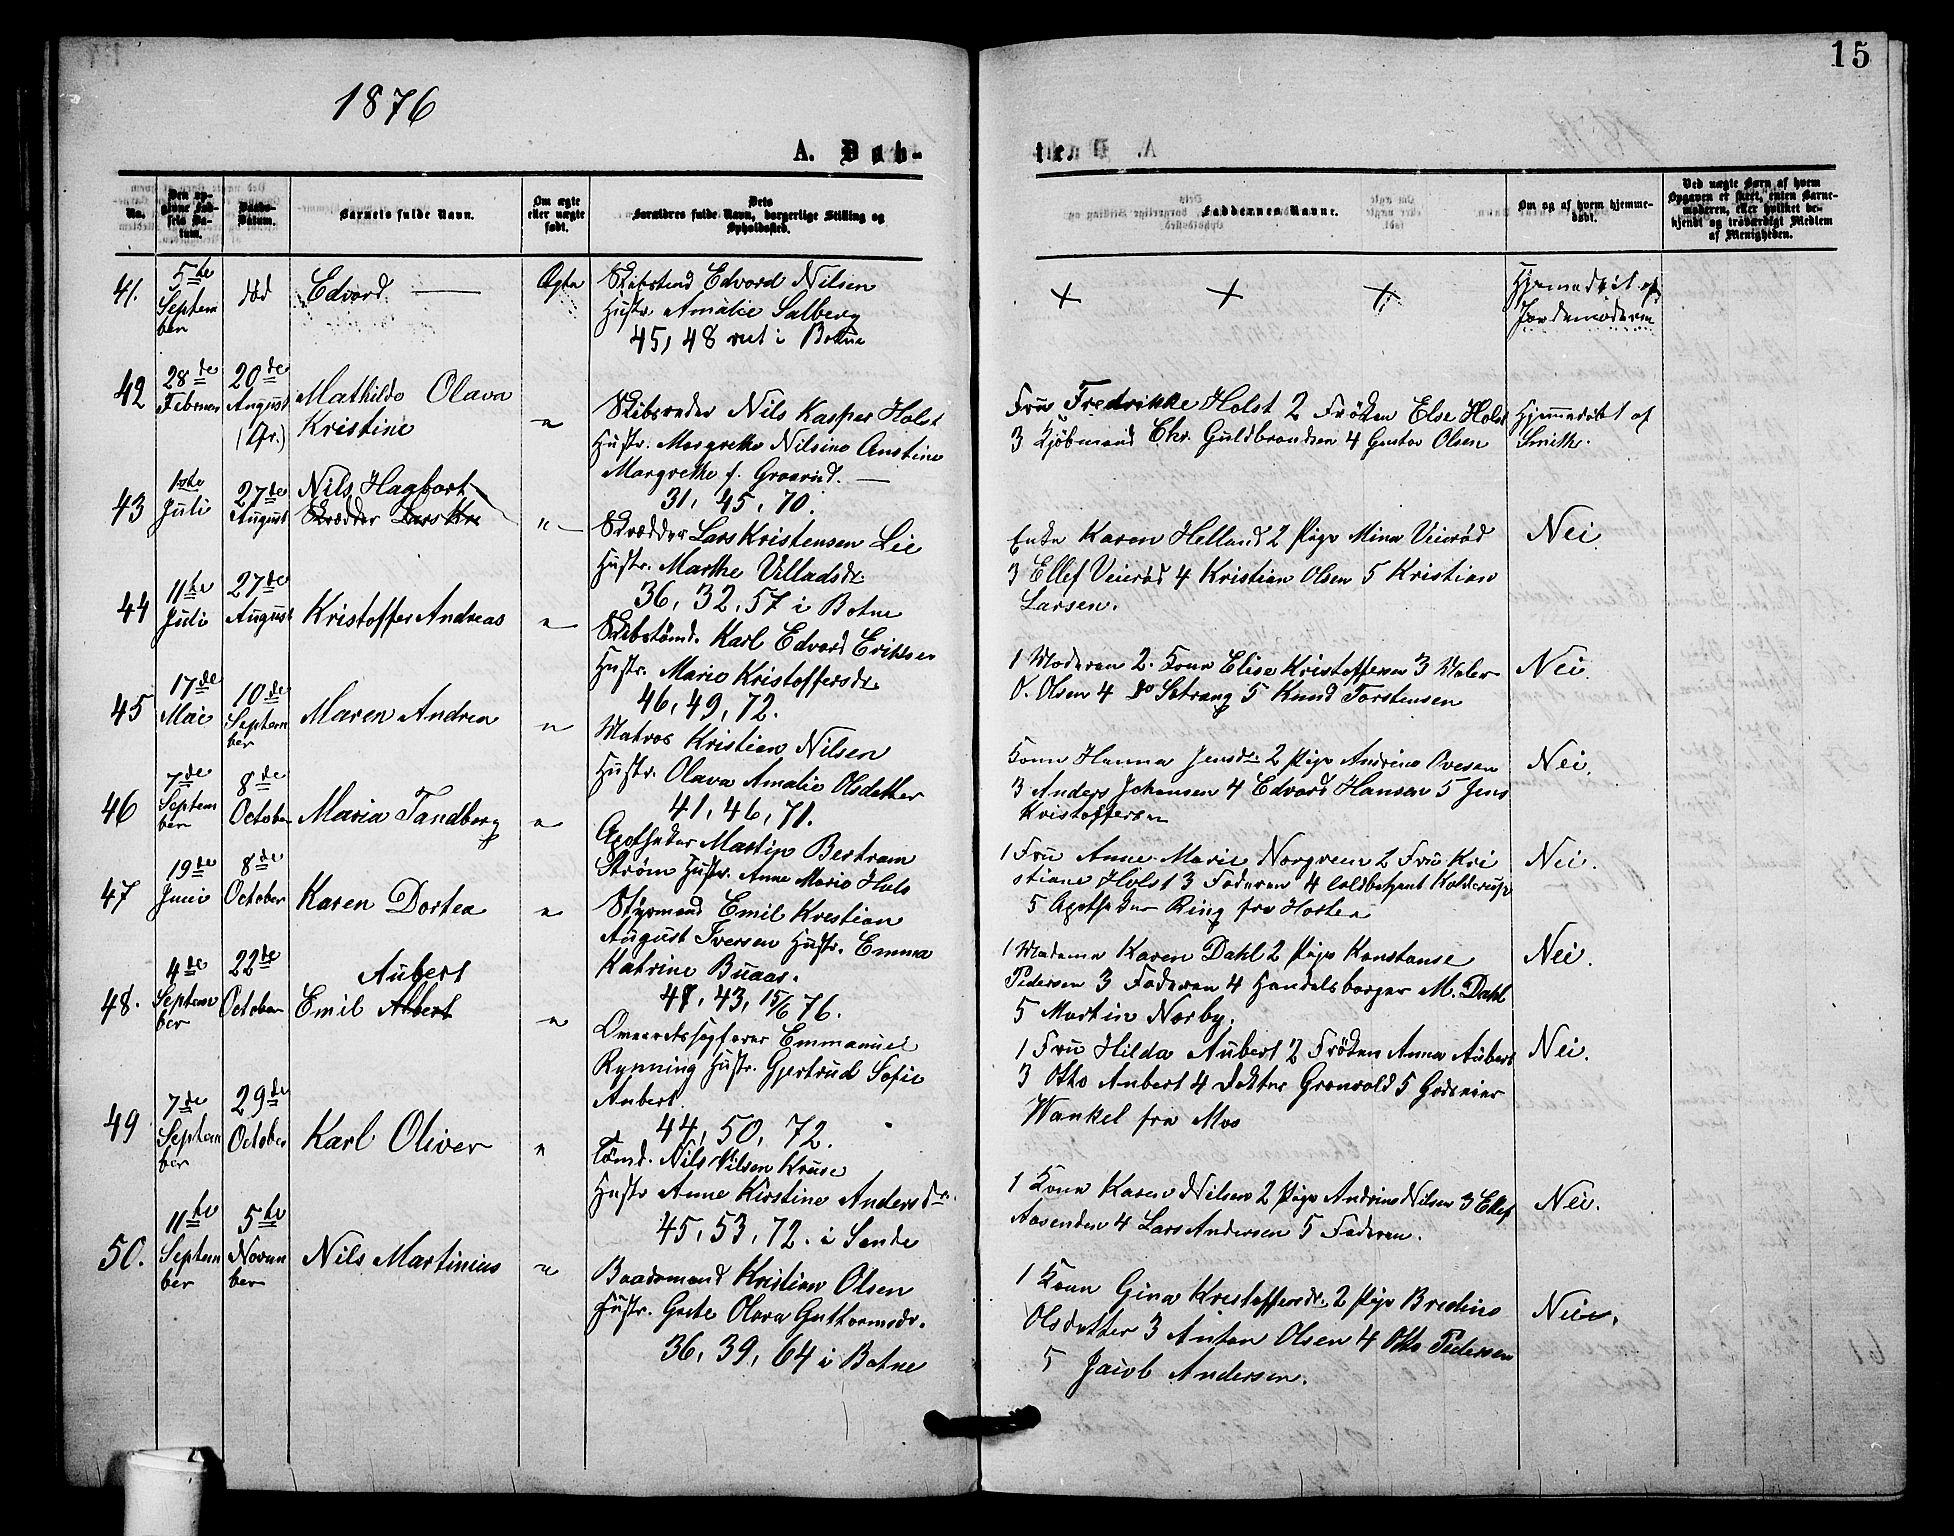 15
1876
A. Døb-
te.
No.
Den opgivne Fødsels Datum.
Daabs-Datum.
Barnets fulde Navn.
Om ægte eller uægte født.
Dets Forældres fulde Navn, borgerlige Stilling og Opholdssted.
Faddernes Navne.
Om og af hvem hjemmedøbt.
Ved uægte Børn af hvem Opgaven er skeet, enten Barnemoderen, eller hvilket bekjendt og troværdigt Medlem af Menigheden.
41. 5te September død Edvard — Ægte
Edvard Nilsen
Hustr. Amalie Salberg
45, 48 i Botne
+ + +
Hjemmedøbt af
Jordemoderen
42 28de Februar 20de August
Mathilde Olava
Kristine
"
Skibsreder Nils Kasper Holst
Hustr. Margrethe Nilsine
Margrethe f.
31, 45, 70.
Fru Fredrikke Holst 2 Frøken Else Holst
3 Kjøbmand Chr. Guldbrandsen 4 Gustav Olsen
Hjemmedøbt af
Smith.
43 1ste Juli 27de August
Nils Hagbart
Skrædder Lars Kr
"
Skrædder Lars Kristensen Lie
Hustr. Marthe Villadsdr.
36, 32, 57 i Botne
Enke Karen Helland 2 Pige Mina Veierød
3 Ellef Veierød 4 Kristian Olsen 5 Kristian
Larsen.
Nei.
44 11te Juli 27de August Kristoffer Andreas "
Skibstømd. Karl Edvard Eriksen
Hustr. Marie Kristoffersdr.
46, 49, 72.
1 Moderen 2. Kone Elise Kristoffersen 3 Maler
O. Olsen 4 do Setrang 5 Knud Torstensen
Nei.
45 17de Mai 10de September Maren Andrea "
Matros Kristian Nilsen
Hustr. Olava Amalie Olsdatter
41, 46, 71.
Kone Hanna Jensdr. 2 Pige Andrine Ovesen
3 Anders Johansen 4 Edvard Hansen 5 Jens
Kristoffersen
Nei.
46 7de September 8de October Maria Tandberg "
Apotheker Martin Bertram
Strøm Hustr. Anne Marie Hols
1 Fru Anne Marie Norgren 2 Fru Kri
stiane Holst 3 Faderen 4 Toldbetjent Kolderup
5 Apotheker Ring fra Horten
Nei.
47 19de Juni 8de October Karen Dortea "
Styrmand Emil Kristian
August Iversen Hustr. Emma
Katrine Buaas.
47, 43, 15/6 76.
1 Madame Karen Dahl 2 Pige Konstanse
Pedersen 3 Faderen 4 Handelsborger M. Dahl
5 Martin Norby.
Nei.
48. 4de September 22de October
Aubert
Emil Albert
"
Overretssagfører Emmanuel
Rynning Hustr. Gjertrud Sofie
Aubert
44, 50, 72.
1 Fru Hilda Aubert 2 Frøken Anna Aubert
3 Otto Aubert 4 Doktor Grønvold 5 Godseier
Wankel fra Mos
Nei.
49 7de September 29de October Karl Oliver "
Tømd. Nils Nilsen Kruse
Hustr Anne Kirstine Andersdr.
45, 53, 72. i Sande
1 Kone Karen Nilsen 2 Pige Andrine Nilsen 3 Ellef
Aasenden 4 Lars Andersen 5 Faderen.
Nei.
50. 11te September 5te November Nils Martinius "
Baadsmand Kristian Olsen
Hustr. Grete Olava Guttormsdr.
36, 39, 64 i Botne
1 Kone Gina Kristoffersdr. 2 Pige Bredine
Olsdatter 3 Anton Olsen 4 Otto Pedersen
5 Jacob Andersen.
Nei.